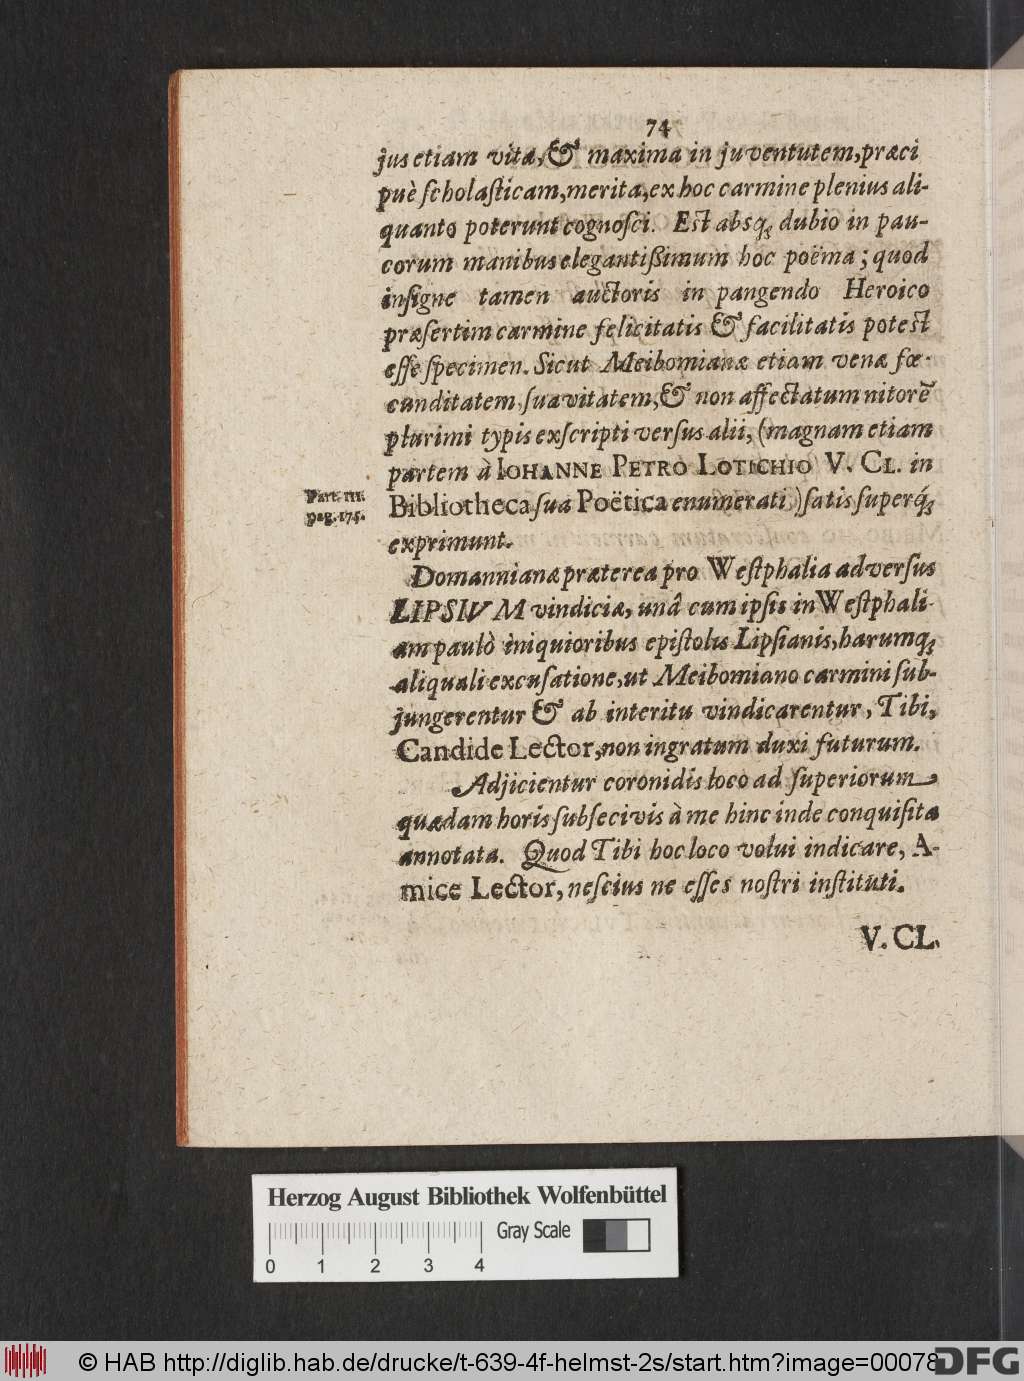 74
jus etiam vitæ, & maxima in juventutem, præci
puè ſcholaſticam, merita, ex hoc carmine plenius ali-
quanto poterunt cognoſci. Est absq; dubio in pau-
corum manibus elegantißimum hoc poëma; quod
inſigne tamen auctoris in pangendo Heroico
præſertim carmine felicitatis & facilitatis potest
eſſe ſpecimen. Sicut Meibomianæ etiam venæ fœ-
cunditatem, ſuavitatem, & non affectatum nitorẽ
plurimi typis exſcripti verſus alii, (magnam etiam
partem à IOHANNE PETRO LOTICHIO V. CL. in
Part. III.
pag. 175.
Bibliotheca ſua Poëtica enumerati) ſatis ſuperq́;
exprimunt.
Domannianæ præterea pro Weſtphalia adverſus
LIPSIUM vindiciæ, unâ cum ipſis in Weſtphali-
am paulò iniquioribus epiſtolis Lipſianis, harumq;
aliquali excuſatione, ut Meibomiano carmini ſub-
jungerentur & ab interitu vindicarentur, Tibi,
Candide Lector, non ingratum duxi futurum.
Adjicientur coronidis loco ad ſuperiorum
quædam horis ſubſecivis à me hinc inde conquiſita
annotata. Quod Tibi hoc loco volui indicare, A-
mice Lector, neſcius ne eſſes noſtri inſtituti.
V. CL.
Herzog August Bibliothek Wolfenbüttel
Gray Scale
0 1 2 3 4
© HAB http://diglib.hab.de/drucke/t-639-4f-helmst-2s/start.htm?image=00078
DFG